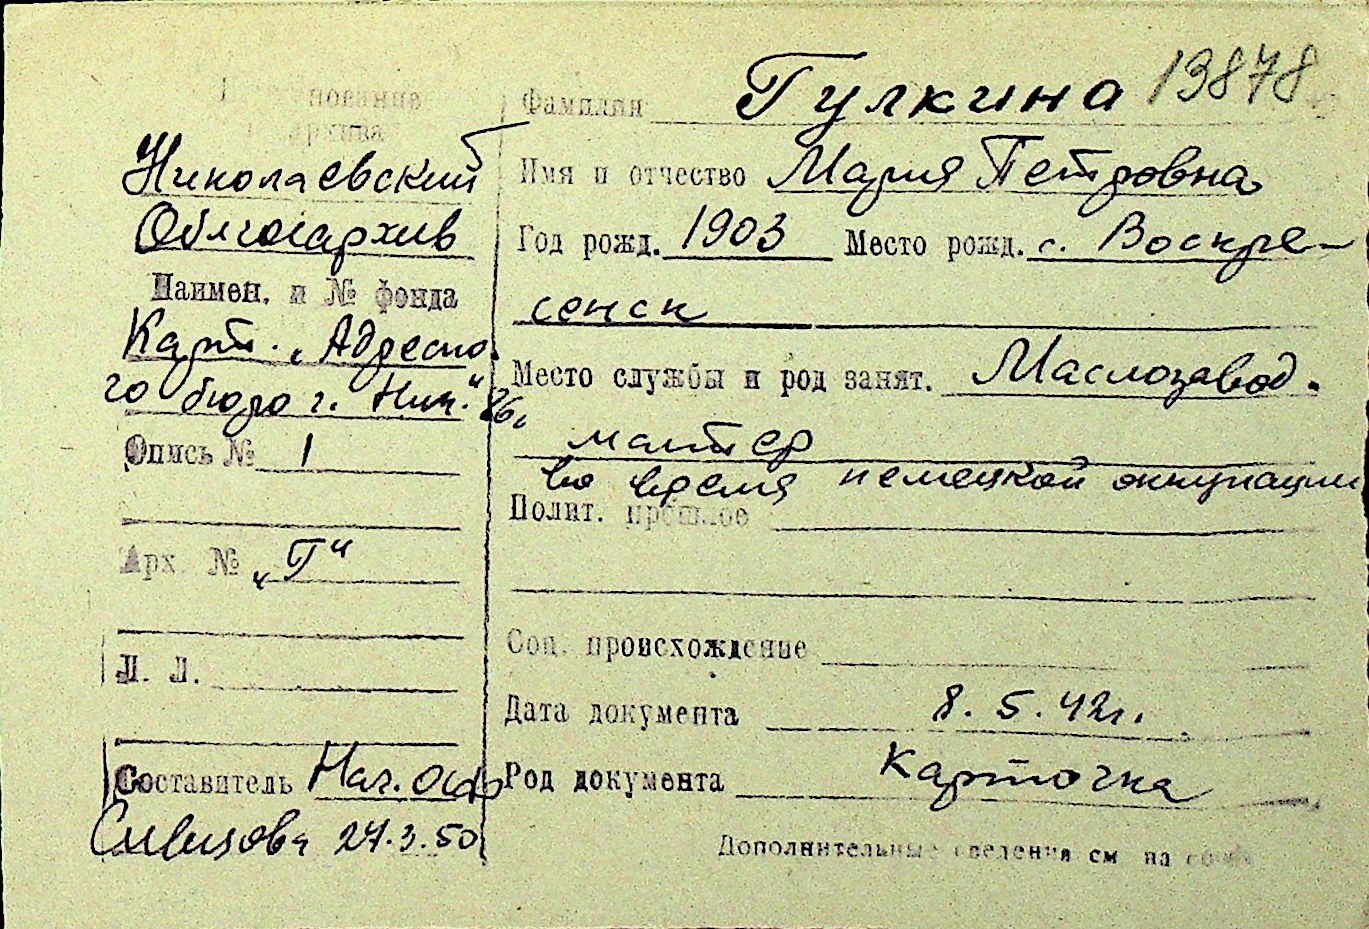 нование
архива
Николаевский
Облгосархив
Наимен. и № фонда
Карт. „Адресно-
го бюро г. Ник."
Опись № 1
Арх. № „Г"
Л. Л.
Составитель Нач. ОСФ
27.3.50
Фамилия Гулкина 13878
Имя и отчество Мария Петровна
Год рожд. 1903 Место рожд. с. Воскре-
сенск
Место службы и род занят. Маслозавод.
мастер
во время немецкой оккупации
Полит. прошлое
Соц. происхождение
Дата документа 8.5.42г.
Род документа Карточка
Дополнительные сведения см на обор